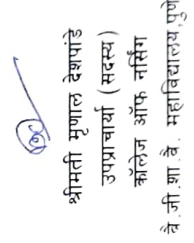 श्रीमती मृणाल देशपांडे
उपप्राचार्या (सदस्य)
कॉलेज ऑफ नर्सिंग
बै.जी.शा.वै. महाविद्यालय,पुणे